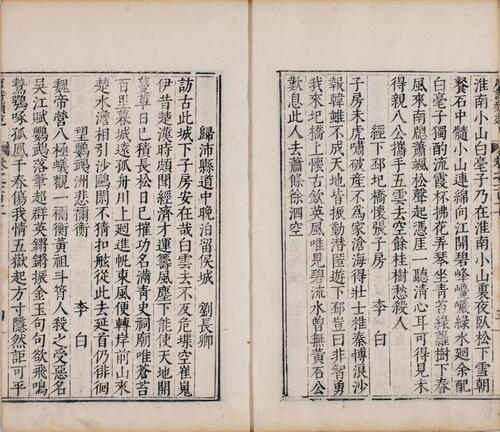 淮南小山白毫子乃在淮南小山裏夜臥松下雪朝
餐石中髓小山連綿向江開碧峰巉巖綠水廻余配
白毫子獨酌流霞杯拂花弄琴坐青苔綠蘿樹下春
風來南䆫蕭颯松聲起憑崖一聽清心耳可得見未
得親八公攜手五雲去空餘桂樹愁殺人
經下邳圯橋懷張子房 李白
子房未虎嘯破產不爲家滄海得壯士推秦博浪沙
報韓雖不成天地皆振動潛匿遊下邳豈曰非智勇
我來圯橋上懷古欽英風唯見碧流水曾無黃石公
歎息此人去蕭條徐泗空
歸沛縣道中晚泊留侯城 劉長卿
訪古此城下子房安在哉白雲去不反危堞空崔嵬
伊昔楚漢時頗聞經濟才運籌風塵下能使天地開
蔓草日已積長松日已摧功名滿青史祠廟唯蒼苔
百里暮城遠孤舟川上廻進帆東風便轉岸前山來
楚水澹相引沙鷗閑不猜扣舷從此去延首仍徘徊
望鸚鵡洲悲禰衡 李白
魏帝營八極蟻觀一禰衡黃祖斗筲人殺之受惡名
吳江賦鸚鵡落筆超群英鏘鏘振金玉句句欲飛鳴
鷙鶚啄孤鳳千春傷我情五嶽起方寸隱然詎可平